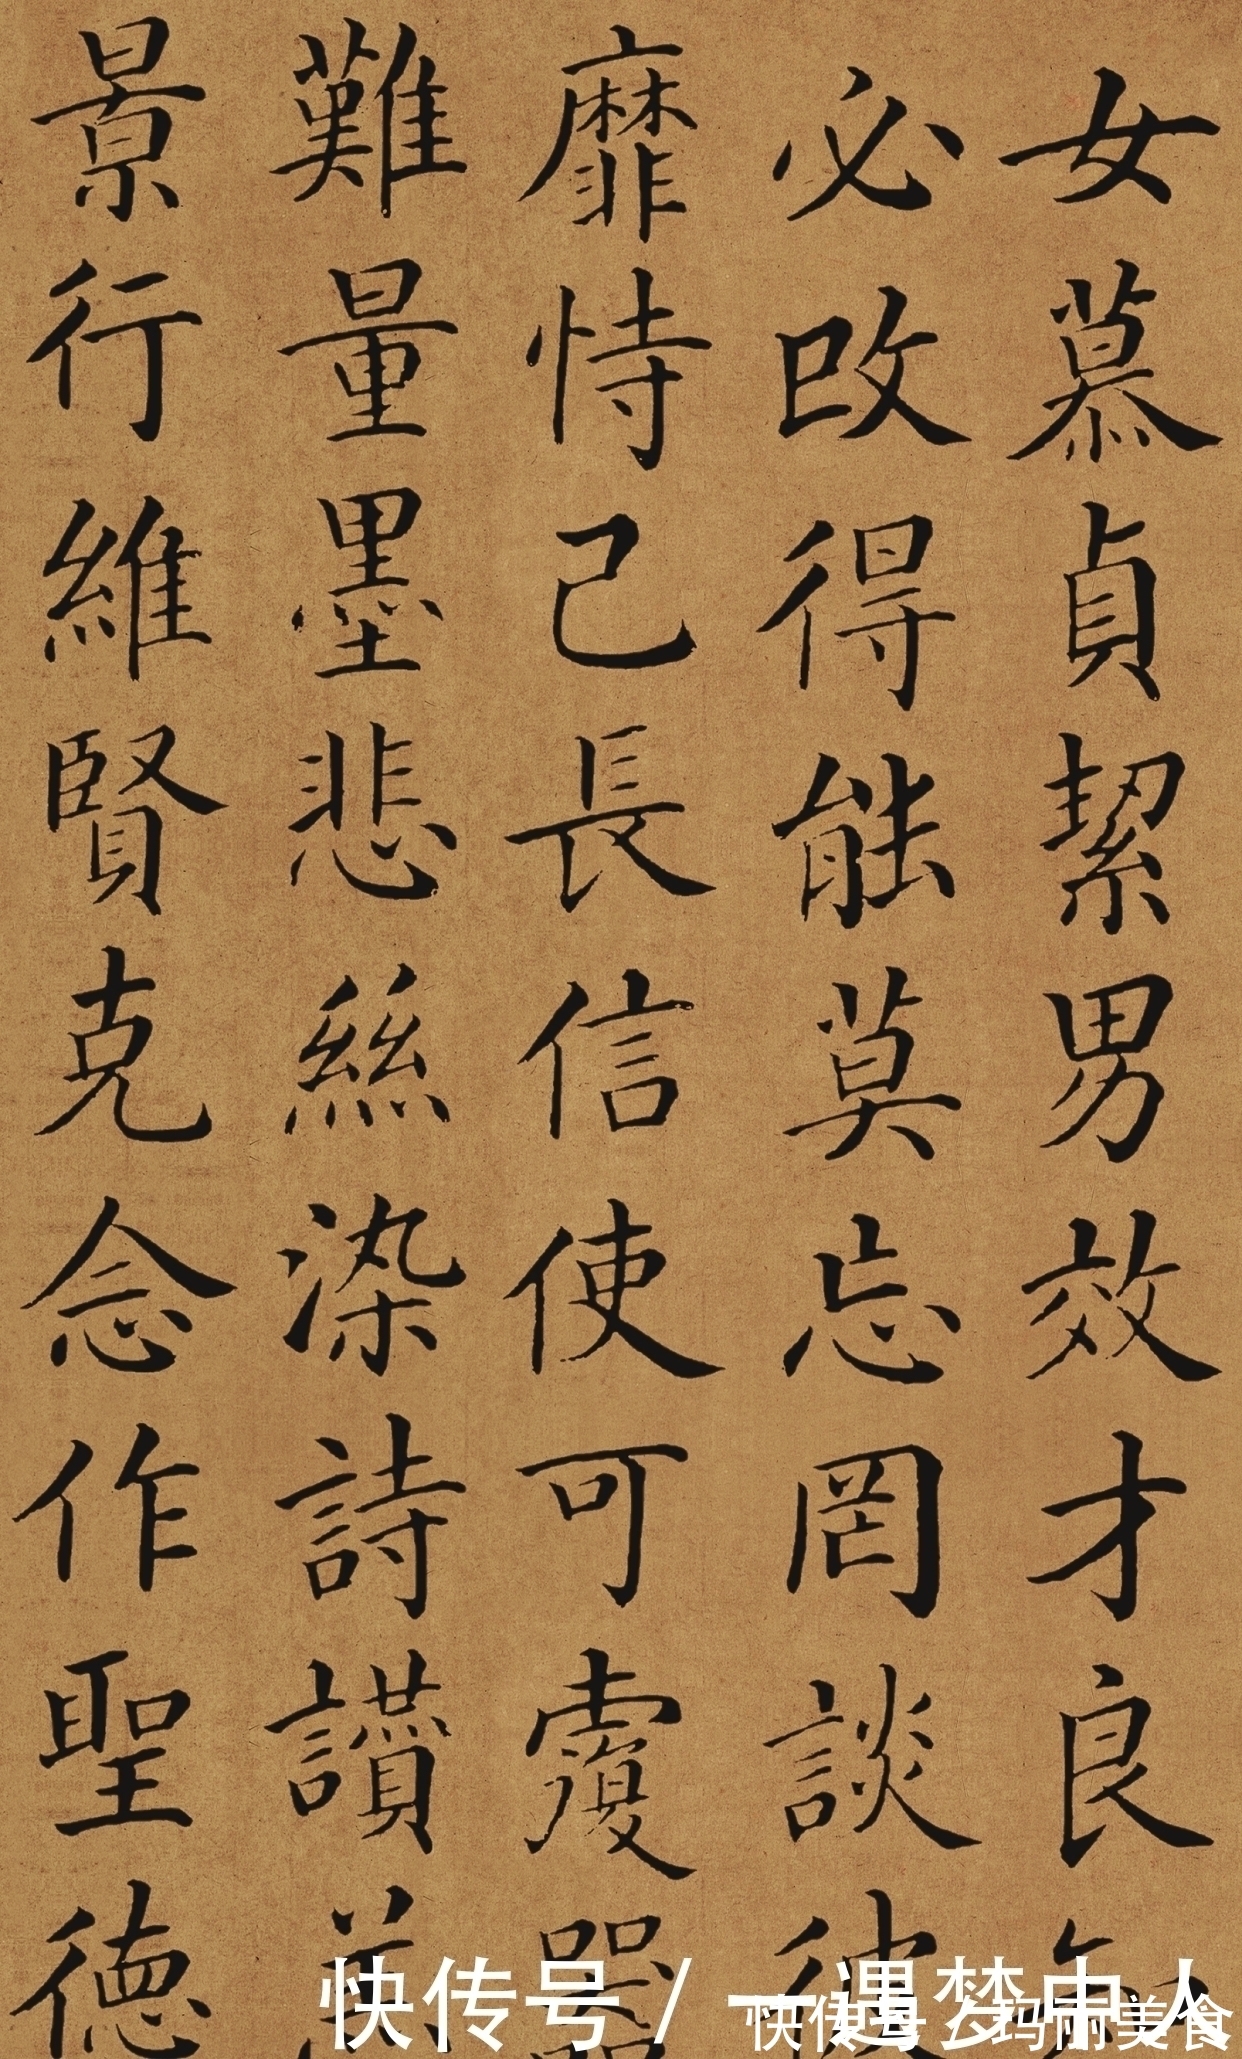 女慕貞絜男效才良知
必改得能莫忘罔談彼
靡恃己長信使可覆器
難量墨悲絲染詩讚羔
景行維賢克念作聖德
快传号/一遇梦中人
快传号/玛丽美食